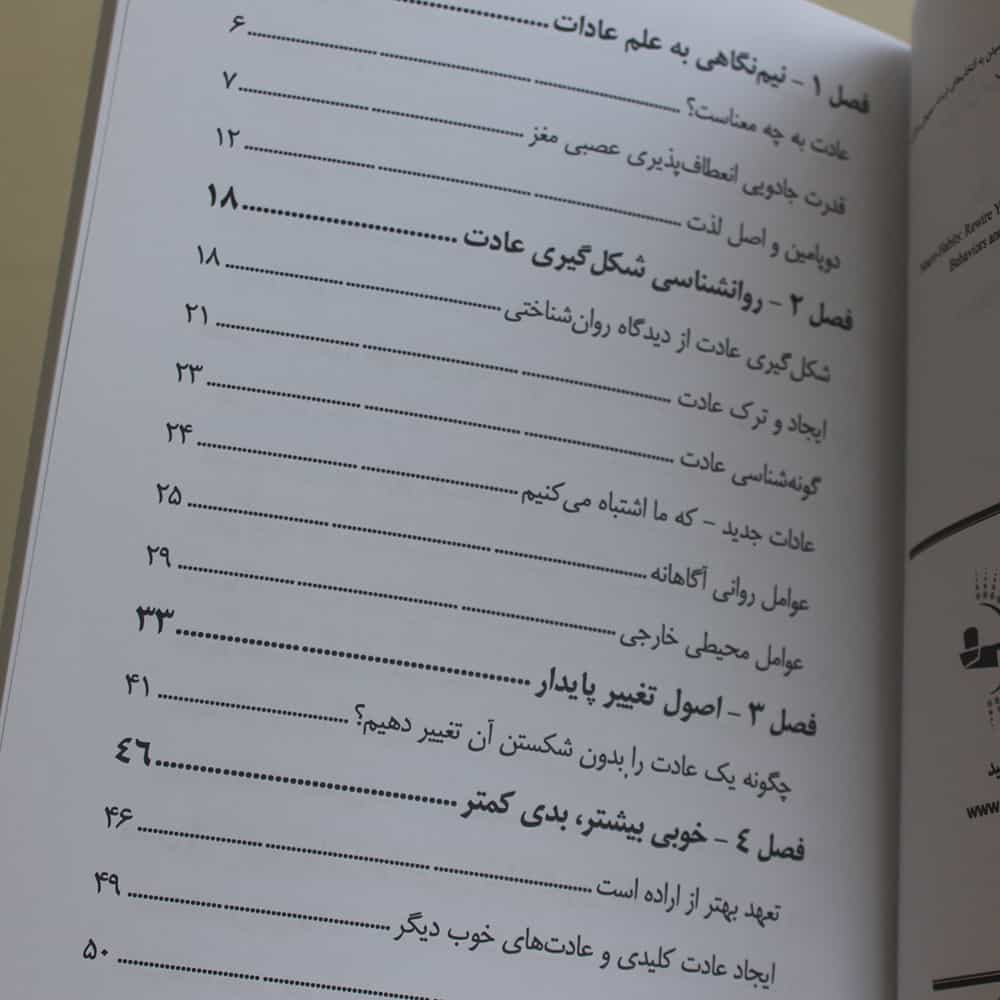 فصل ۱ - نیم‌نگاهی به علم عادات ........
عادت به چه معناست؟ ........ ۶
قدرت جادویی انعطاف‌پذیری عصبی مغز ........ ۷
دوپامین و اصل لذت ........ ۱۲
فصل ۲ - روانشناسی شکل‌گیری عادت ........ ۱۸
شکل‌گیری عادت از دیدگاه روان‌شناختی ........ ۱۸
ایجاد و ترک عادت ........ ۲۱
گونه‌شناسی عادت ........ ۲۳
عادات جدید – که ما اشتباه می‌کنیم ........ ۲۴
عوامل روانی آگاهانه ........ ۲۵
عوامل محیطی خارجی ........ ۲۹
فصل ۳ - اصول تغییر پایدار ........ ۳۳
چگونه یک عادت را بدون شکستن آن تغییر دهیم؟ ........ ۴۱
فصل ٤ - خوبی بیشتر، بدی کمتر ........ ٤٦
تعهد بهتر از اراده است ........ ۴۶
ایجاد عادت کلیدی و عادت‌های خوب دیگر ........ ۴۹
........ ۵۰
Habits: Rewire
Behaviors and
www.